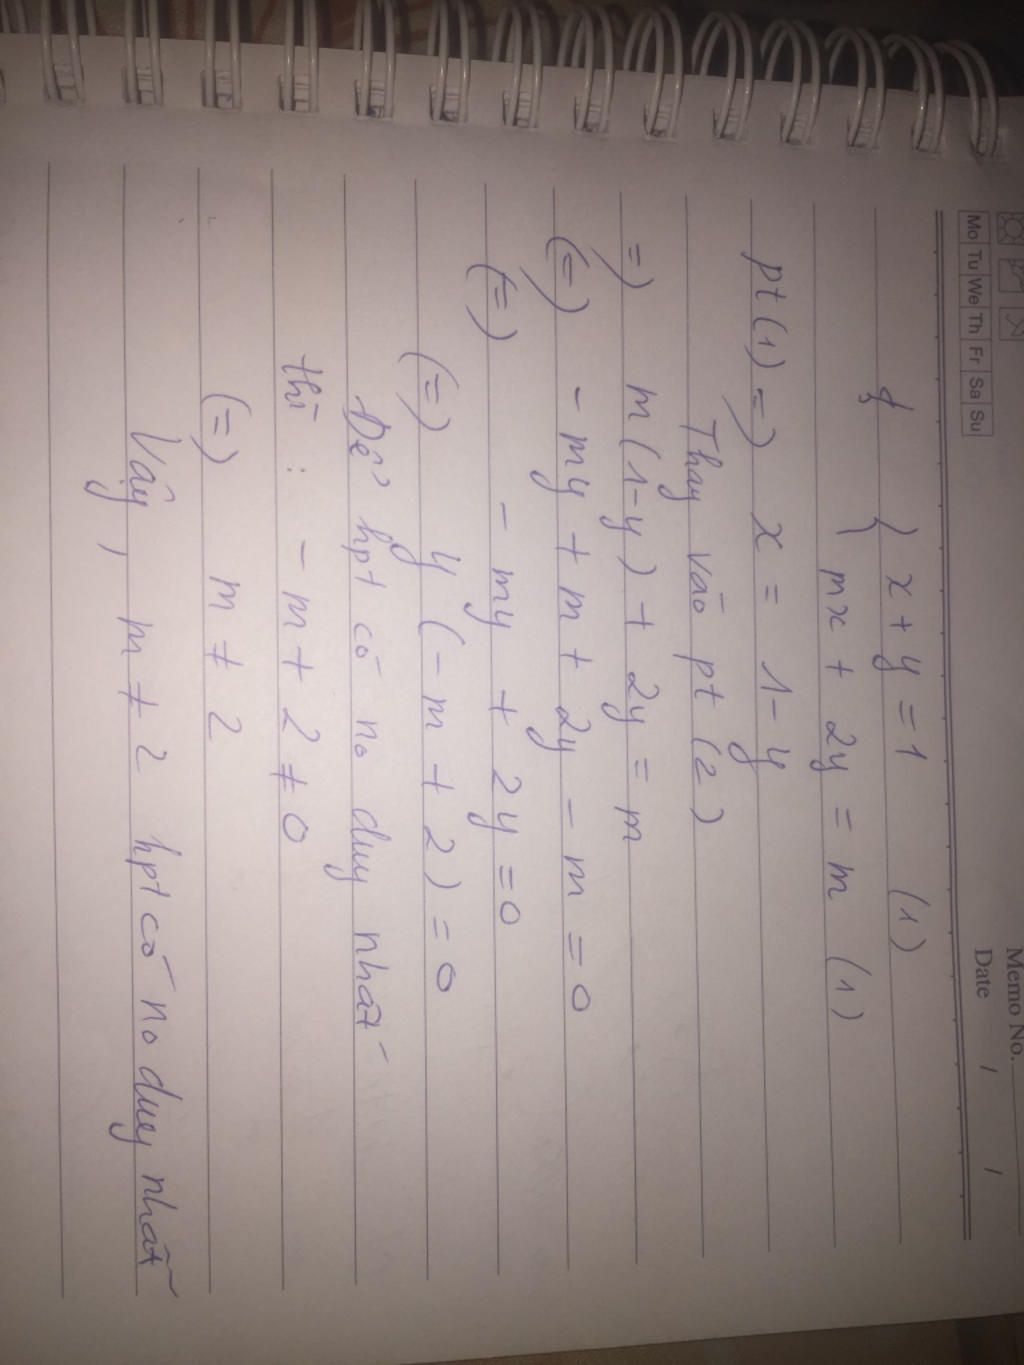 Memo No.
Date / /
Mo Tu We Th Fr Sa Su
{ x + y = 1 (1)
mx + 2y = m (1)
pt (1) =) x = 1-y
Thay vào pt (2)
=) m (1-y) + 2y = m
(=) - my + m + 2y - m = 0
(=) - my + 2y = 0
(=) y (- m + 2) = 0
Để hpt có no duy nhất
thì : - m + 2 ≠ 0
(=) m ≠ 2
Vậy, m ≠ 2 hpt có no duy nhất